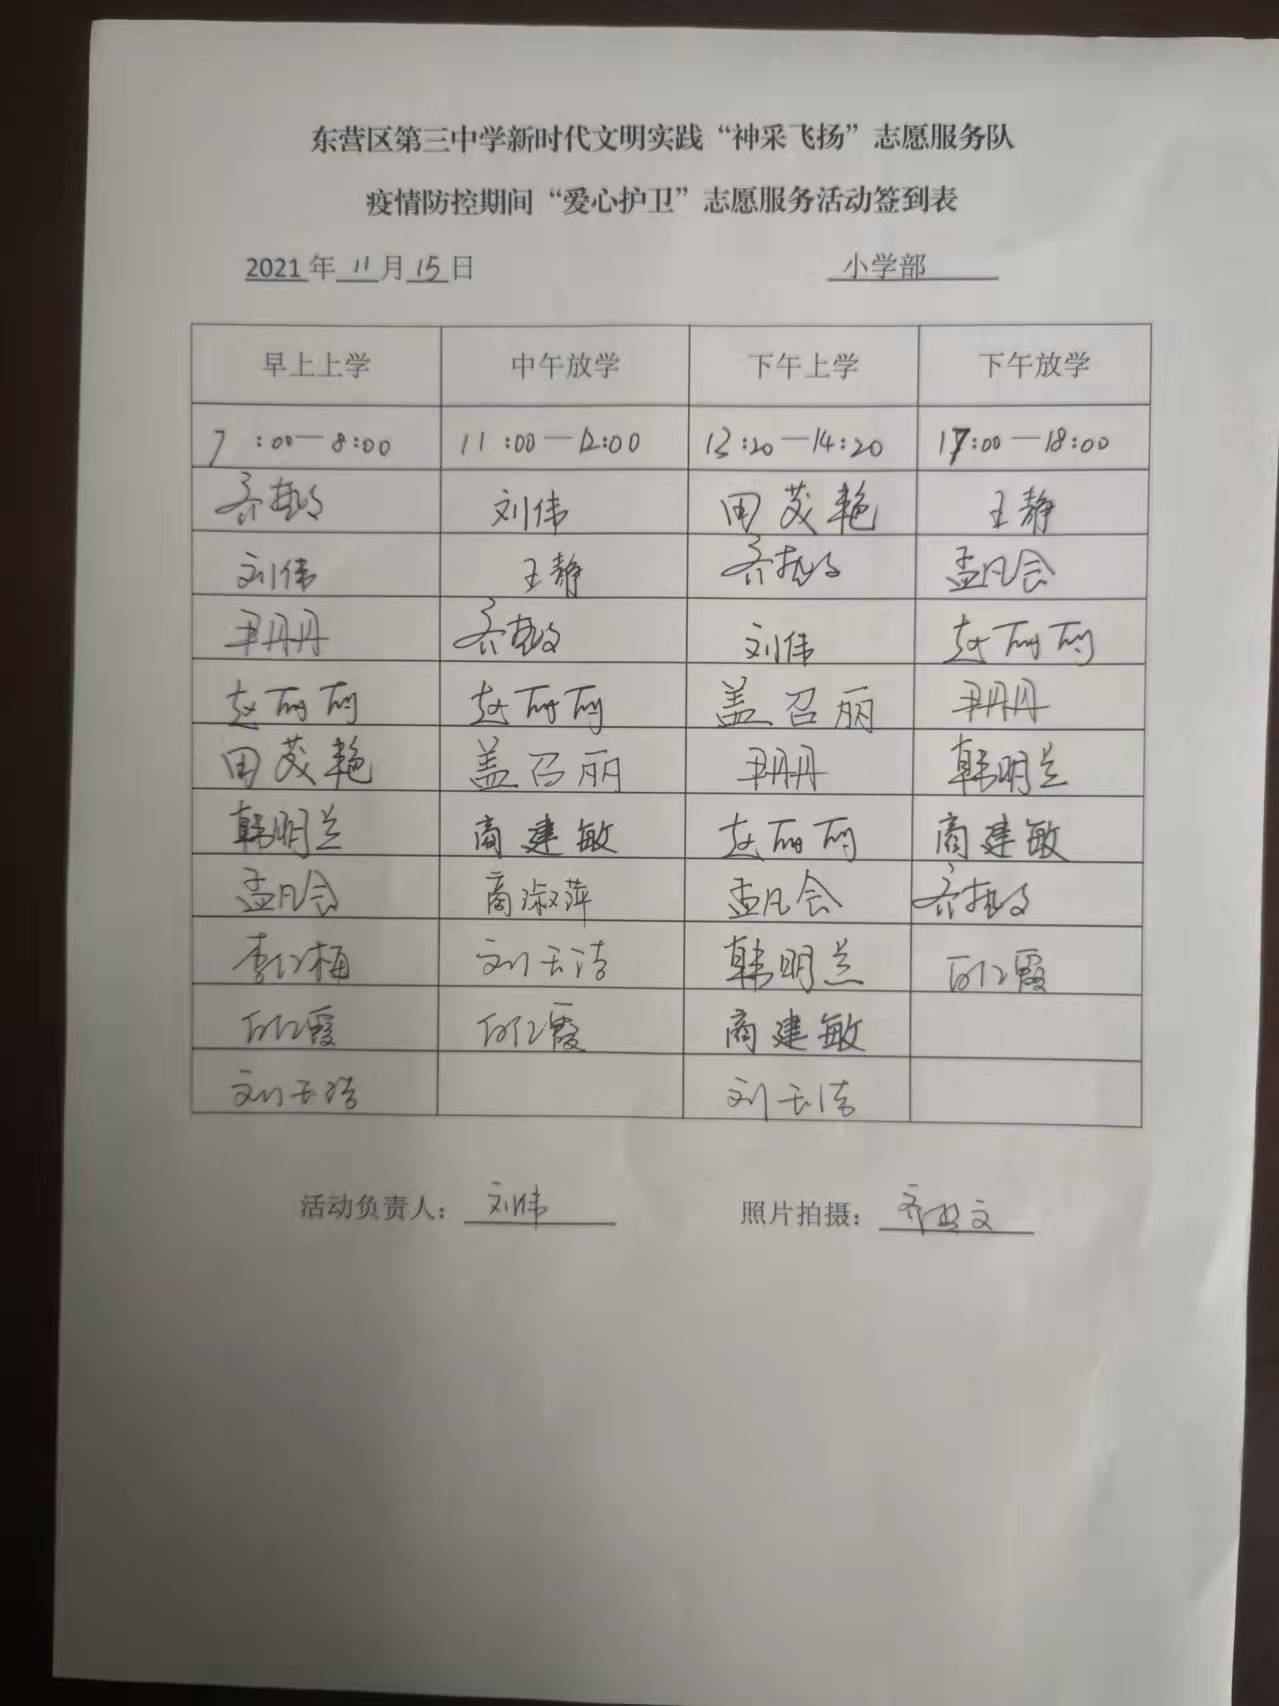 东营区第三中学新时代文明实践“神采飞扬”志愿服务队
疫情防控期间“爱心护卫”志愿服务活动签到表
2021年 11 月 15 日 小学部
早上上学 中午放学 下午上学 下午放学
7:00—8:00 11:00—12:00 13:20—14:20 17:00—18:00
刘伟 田茂艳 王静
刘伟 王静 孟凡会
尹丹丹 刘伟 赵丽丽
赵丽丽 赵丽丽 盖召丽 尹丹丹
田茂艳 盖召丽 尹丹丹 韩明兰
韩明兰 商建敏 赵丽丽 商建敏
孟凡会 商淑萍 孟凡会
李红梅 刘玉洁 韩明兰
商建敏
刘玉洁 刘玉洁
活动负责人: 刘伟 照片拍摄: